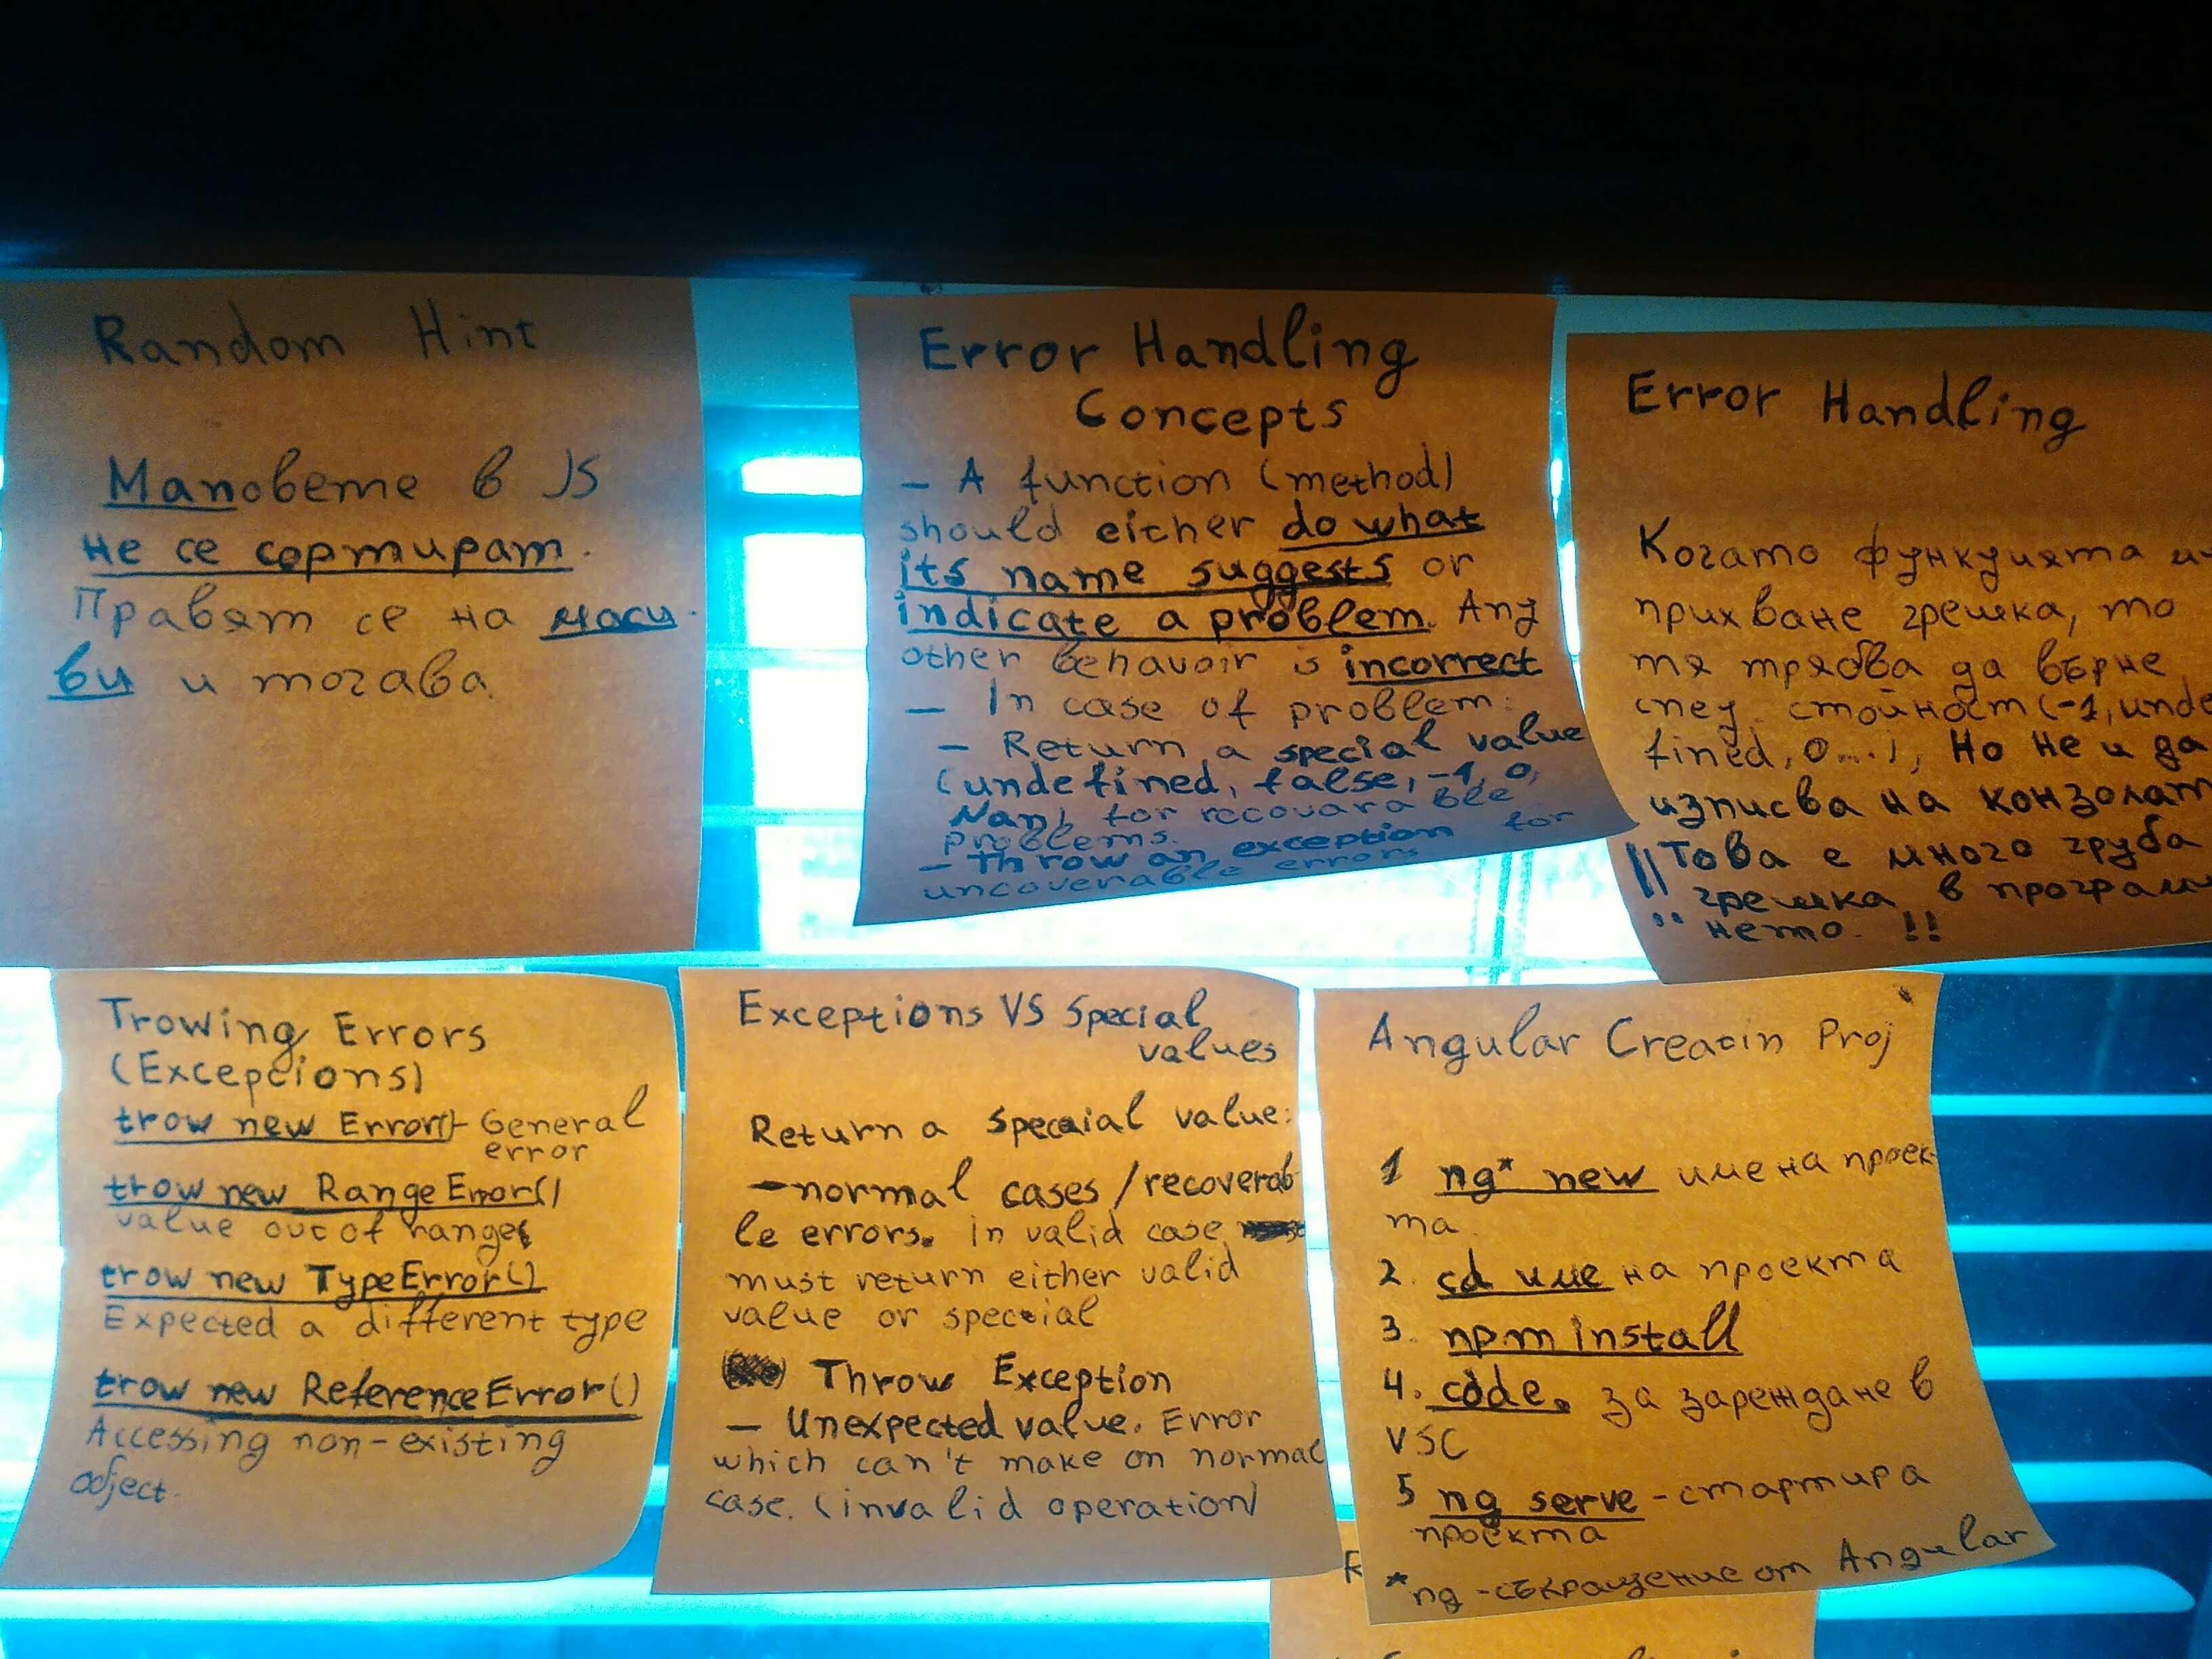 Random Hint
Маповете в JS
не се сортират.
Правят се на маси-
ви и тогава.
Error Handling
Concepts
- A function (method)
should either do what
its name suggests or
indicate a problem. Any
other behavoir is incorrect
- In case of problem:
- Return a special value
(undefined, false, -1, 0,
Nan) for recovarable
problems.
- Throw an exception for
uncoverable errors
Error Handling
Когато функцията
прихване грешка, то
тя трябва да върне
спец. стойност (-1, unde
fined, 0...), Но не и да
изписва на конзолат
!! Това е много груба
грешка в програм
нето. !!
Trowing Errors
(Excepcions)
trow new Error() - General
error
trow new RangeError()
value out of range
trow new TypeError()
Expected a different type
trow new ReferenceError()
Accessing non-existing
object.
Exceptions VS Special
values
Return a special value:
- normal cases / recoverab
le errors. in valid case
must return either valid
value or special
Throw Exception
- Unexpected value. Error
which can't make on normal
case. (invalid operation)
Angular Creatin Proj
1 ng* new име на проек-
та.
2. cd име на проекта
3. npm install
4. code. за зареждане в
VSC
5 ng serve - стартира
проекта
*ng - съкращение от Angular